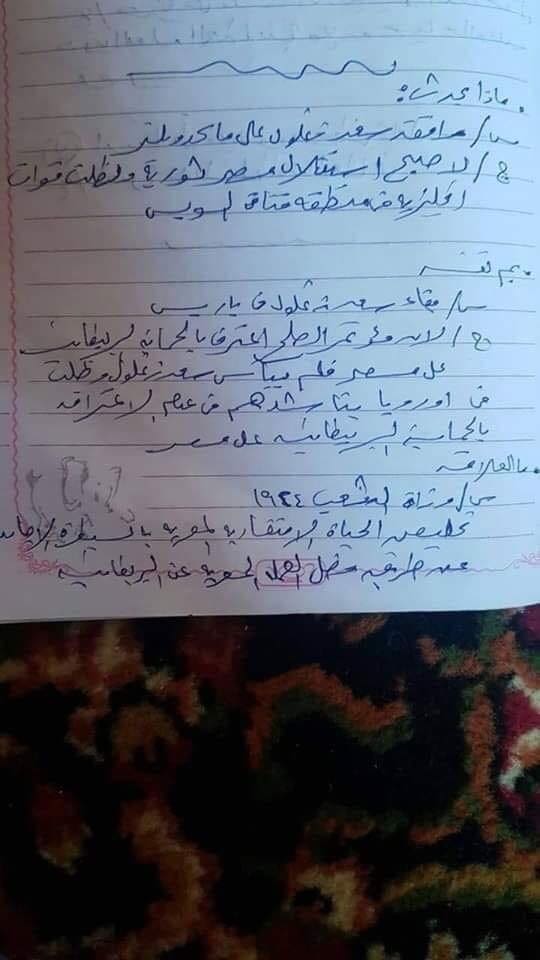 ماذا يحدث:
س/ موافقة سعد زغلول على ماكدونلد
ج/ لاصبح استقلال مصر صورية ولظلت قوات
انجليزية فى منطقه قناة السويس
بم تفسر
س/ بقاء سعد زغلول فى باريس
ج/ لان مؤتمر الصلح اعترف بالحماية البريطانية
على مصر فلم ييأس سعد زغلول وظلت
فى اوروبا يناشدهم فى عدم الاعتراف
بالحماية البريطانية على مصر
ما العلاقة
س/ وزارة الشعب ١٩٢٤
تخليص الحياة الاقتصادية المصرية بالسيطرة
عن طريق فصل العملة المصرية عن البريطانية